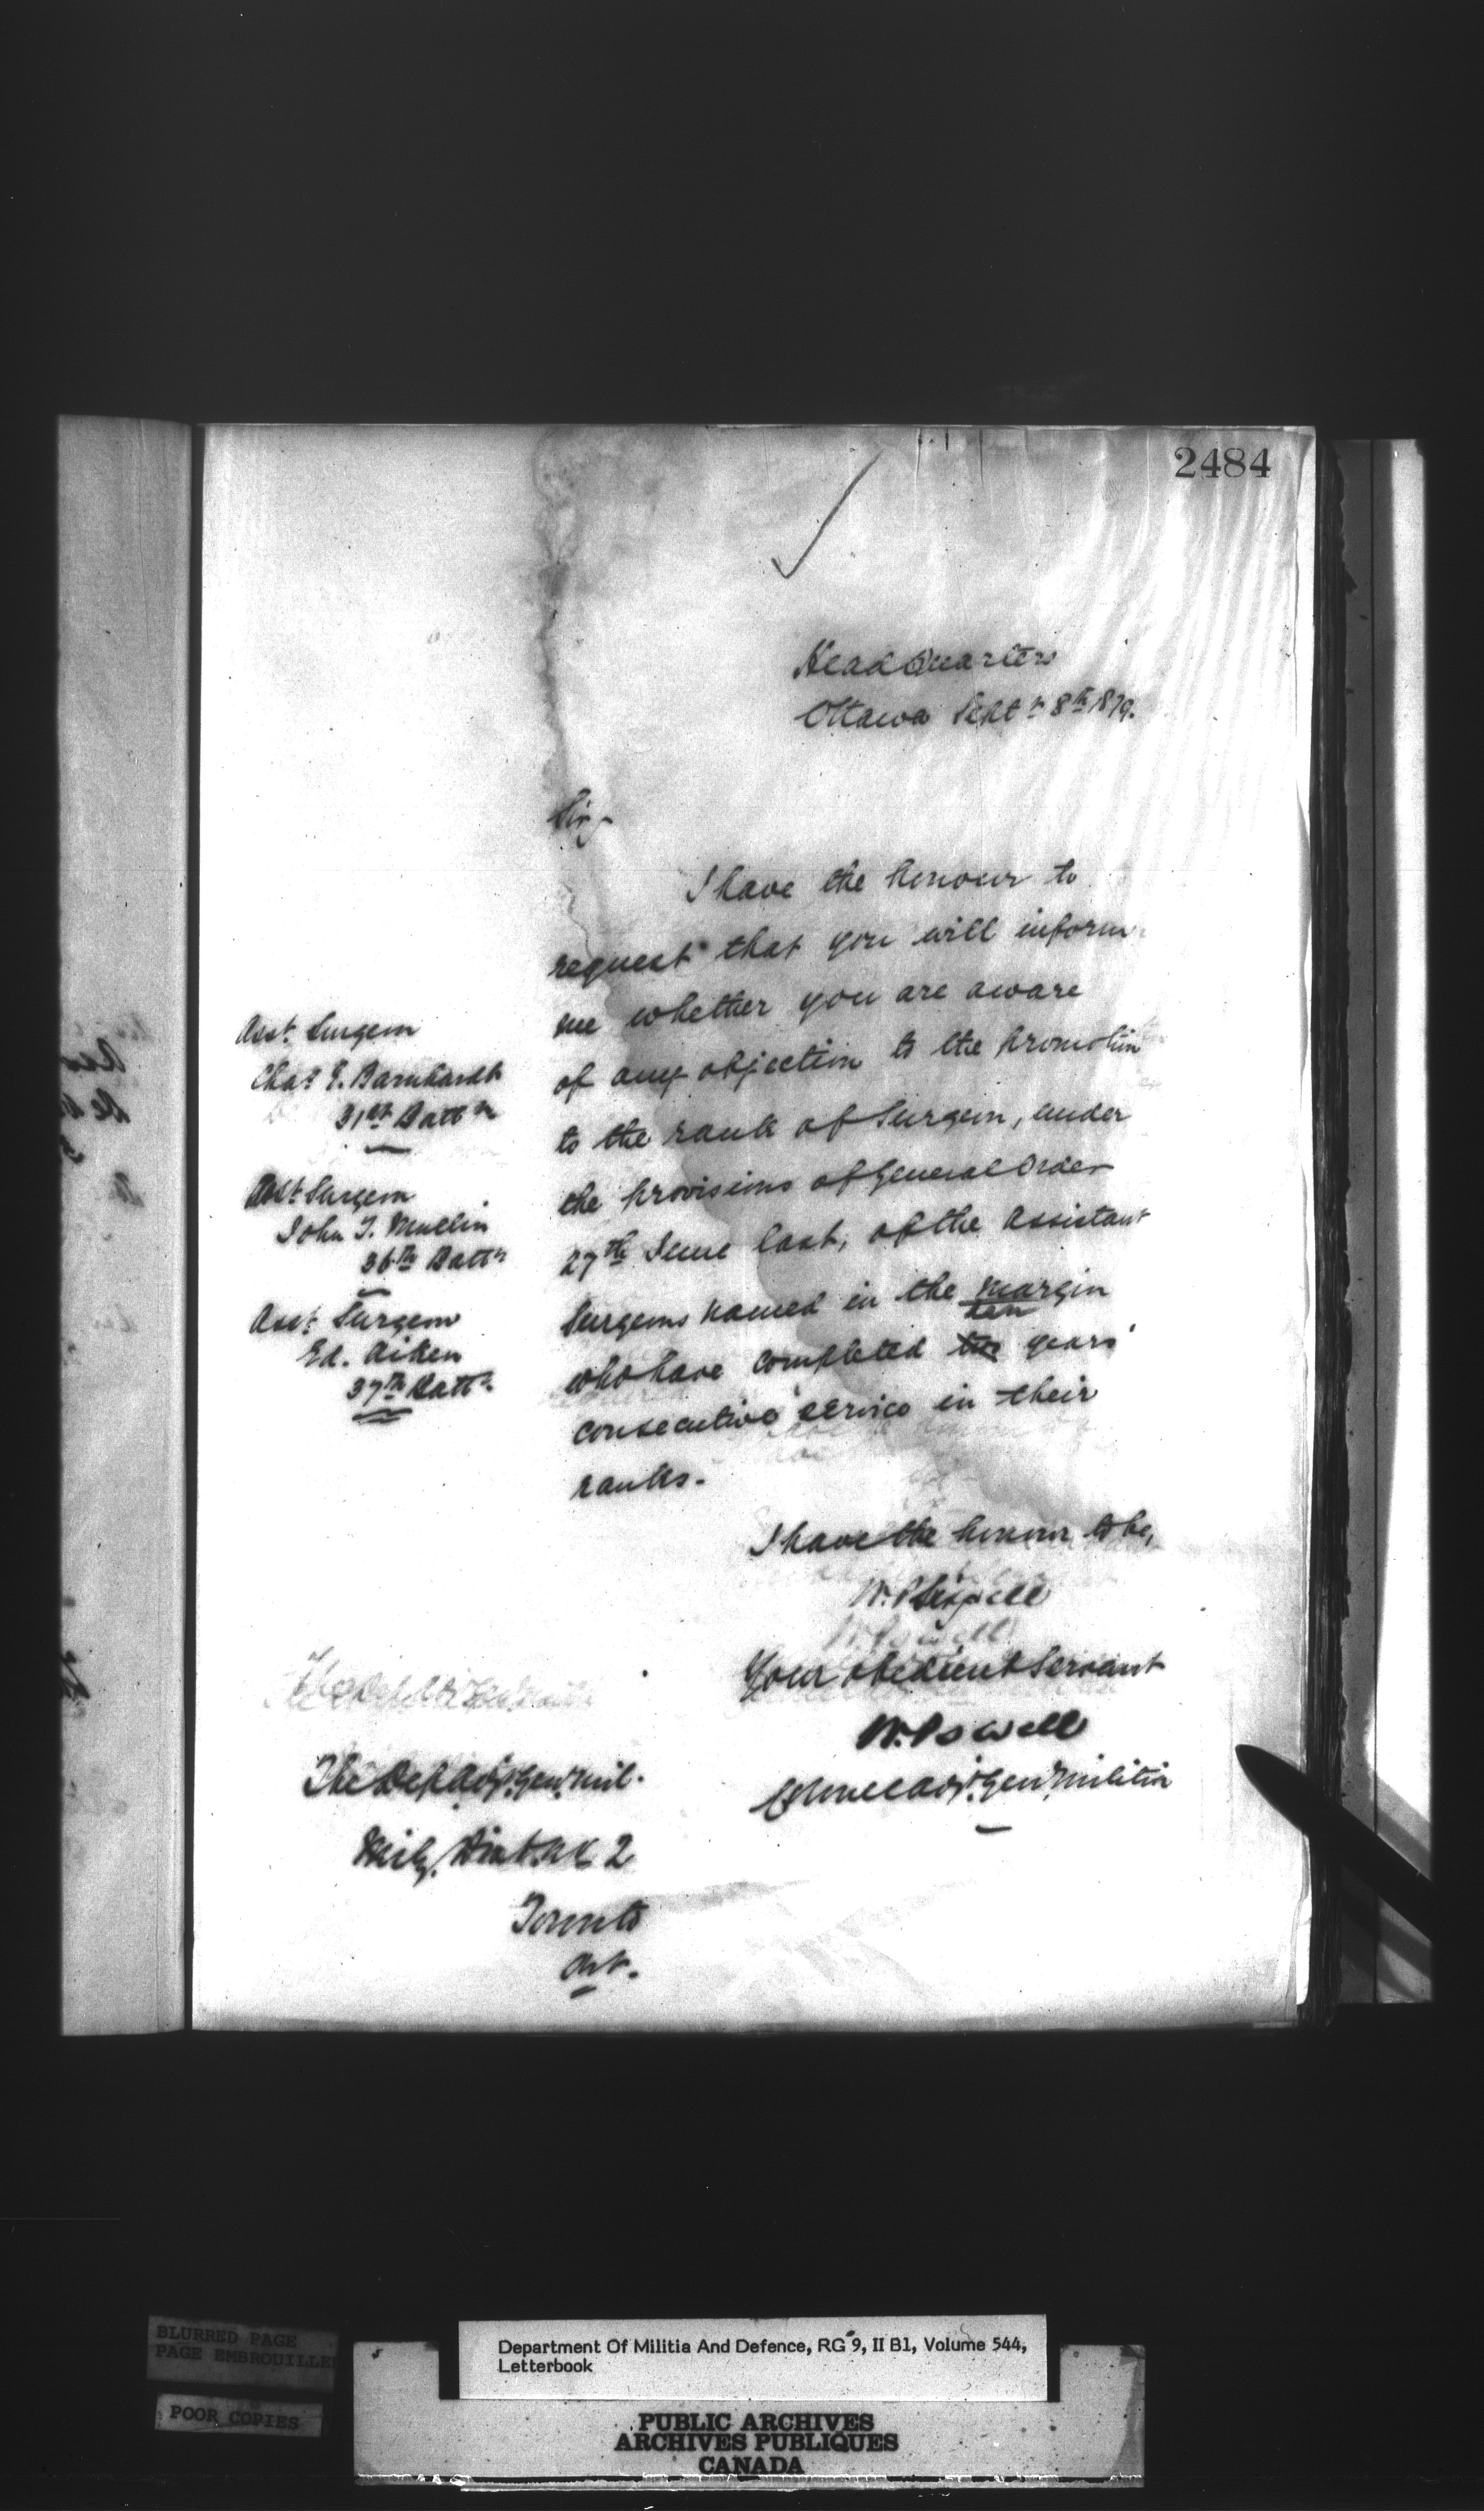 2484
Head Quarters
Ottawa Sept r 8th 1879.
Sir,
I have the honour to
request that you will inform
me whether you are aware
of any objection to the promotion
to the rank of Surgeon, under
the provisions of General Order
27th June last, of the Assistant
Surgeons named in the margin
ten
who have completed two years'
consecutive service in their
ranks.
Asst. Surgeon
Chas E. Barnhardt
31st Battn
Asst. Surgeon
John T. Mullin
36th Battn
Asst. Surgeon
Ed. Aiken
37th Battn
I have the honour to be,
W. Powell
Your obedient Servant
W. Powell
Colonel Adjt. Genl Militia
The Dep. Adjt. Genl Mil.
Mily. Dist. No 2
Toronto
Ont.
BLURRED PAGE
PAGE EMBROUILLEE
POOR COPIES
Department Of Militia And Defence, RG 9, II B1, Volume 544,
Letterbook
PUBLIC ARCHIVES
ARCHIVES PUBLIQUES
CANADA